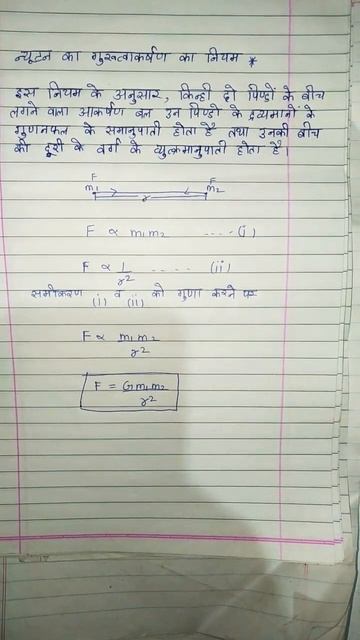 न्यूटन का गुरुत्वाकर्षण का नियम *
इस नियम के अनुसार, किन्ही दो पिण्डों के बीच
लगने वाला आकर्षण बल उन पिण्डो के द्रव्यमानों के
गुणनफल के समानुपाती होता है तथा उनकी बीच
की दूरी के वर्ग के व्युत्क्रमानुपाती होता है।
F F
m₁ m₂
r
F ∝ m₁m₂ ....(i)
F ∝ 1/r² ..... (ii)
समीकरण (i) व (ii) को गुणा करने पर
F ∝ m₁m₂/r²
F = Gm₁m₂/r²